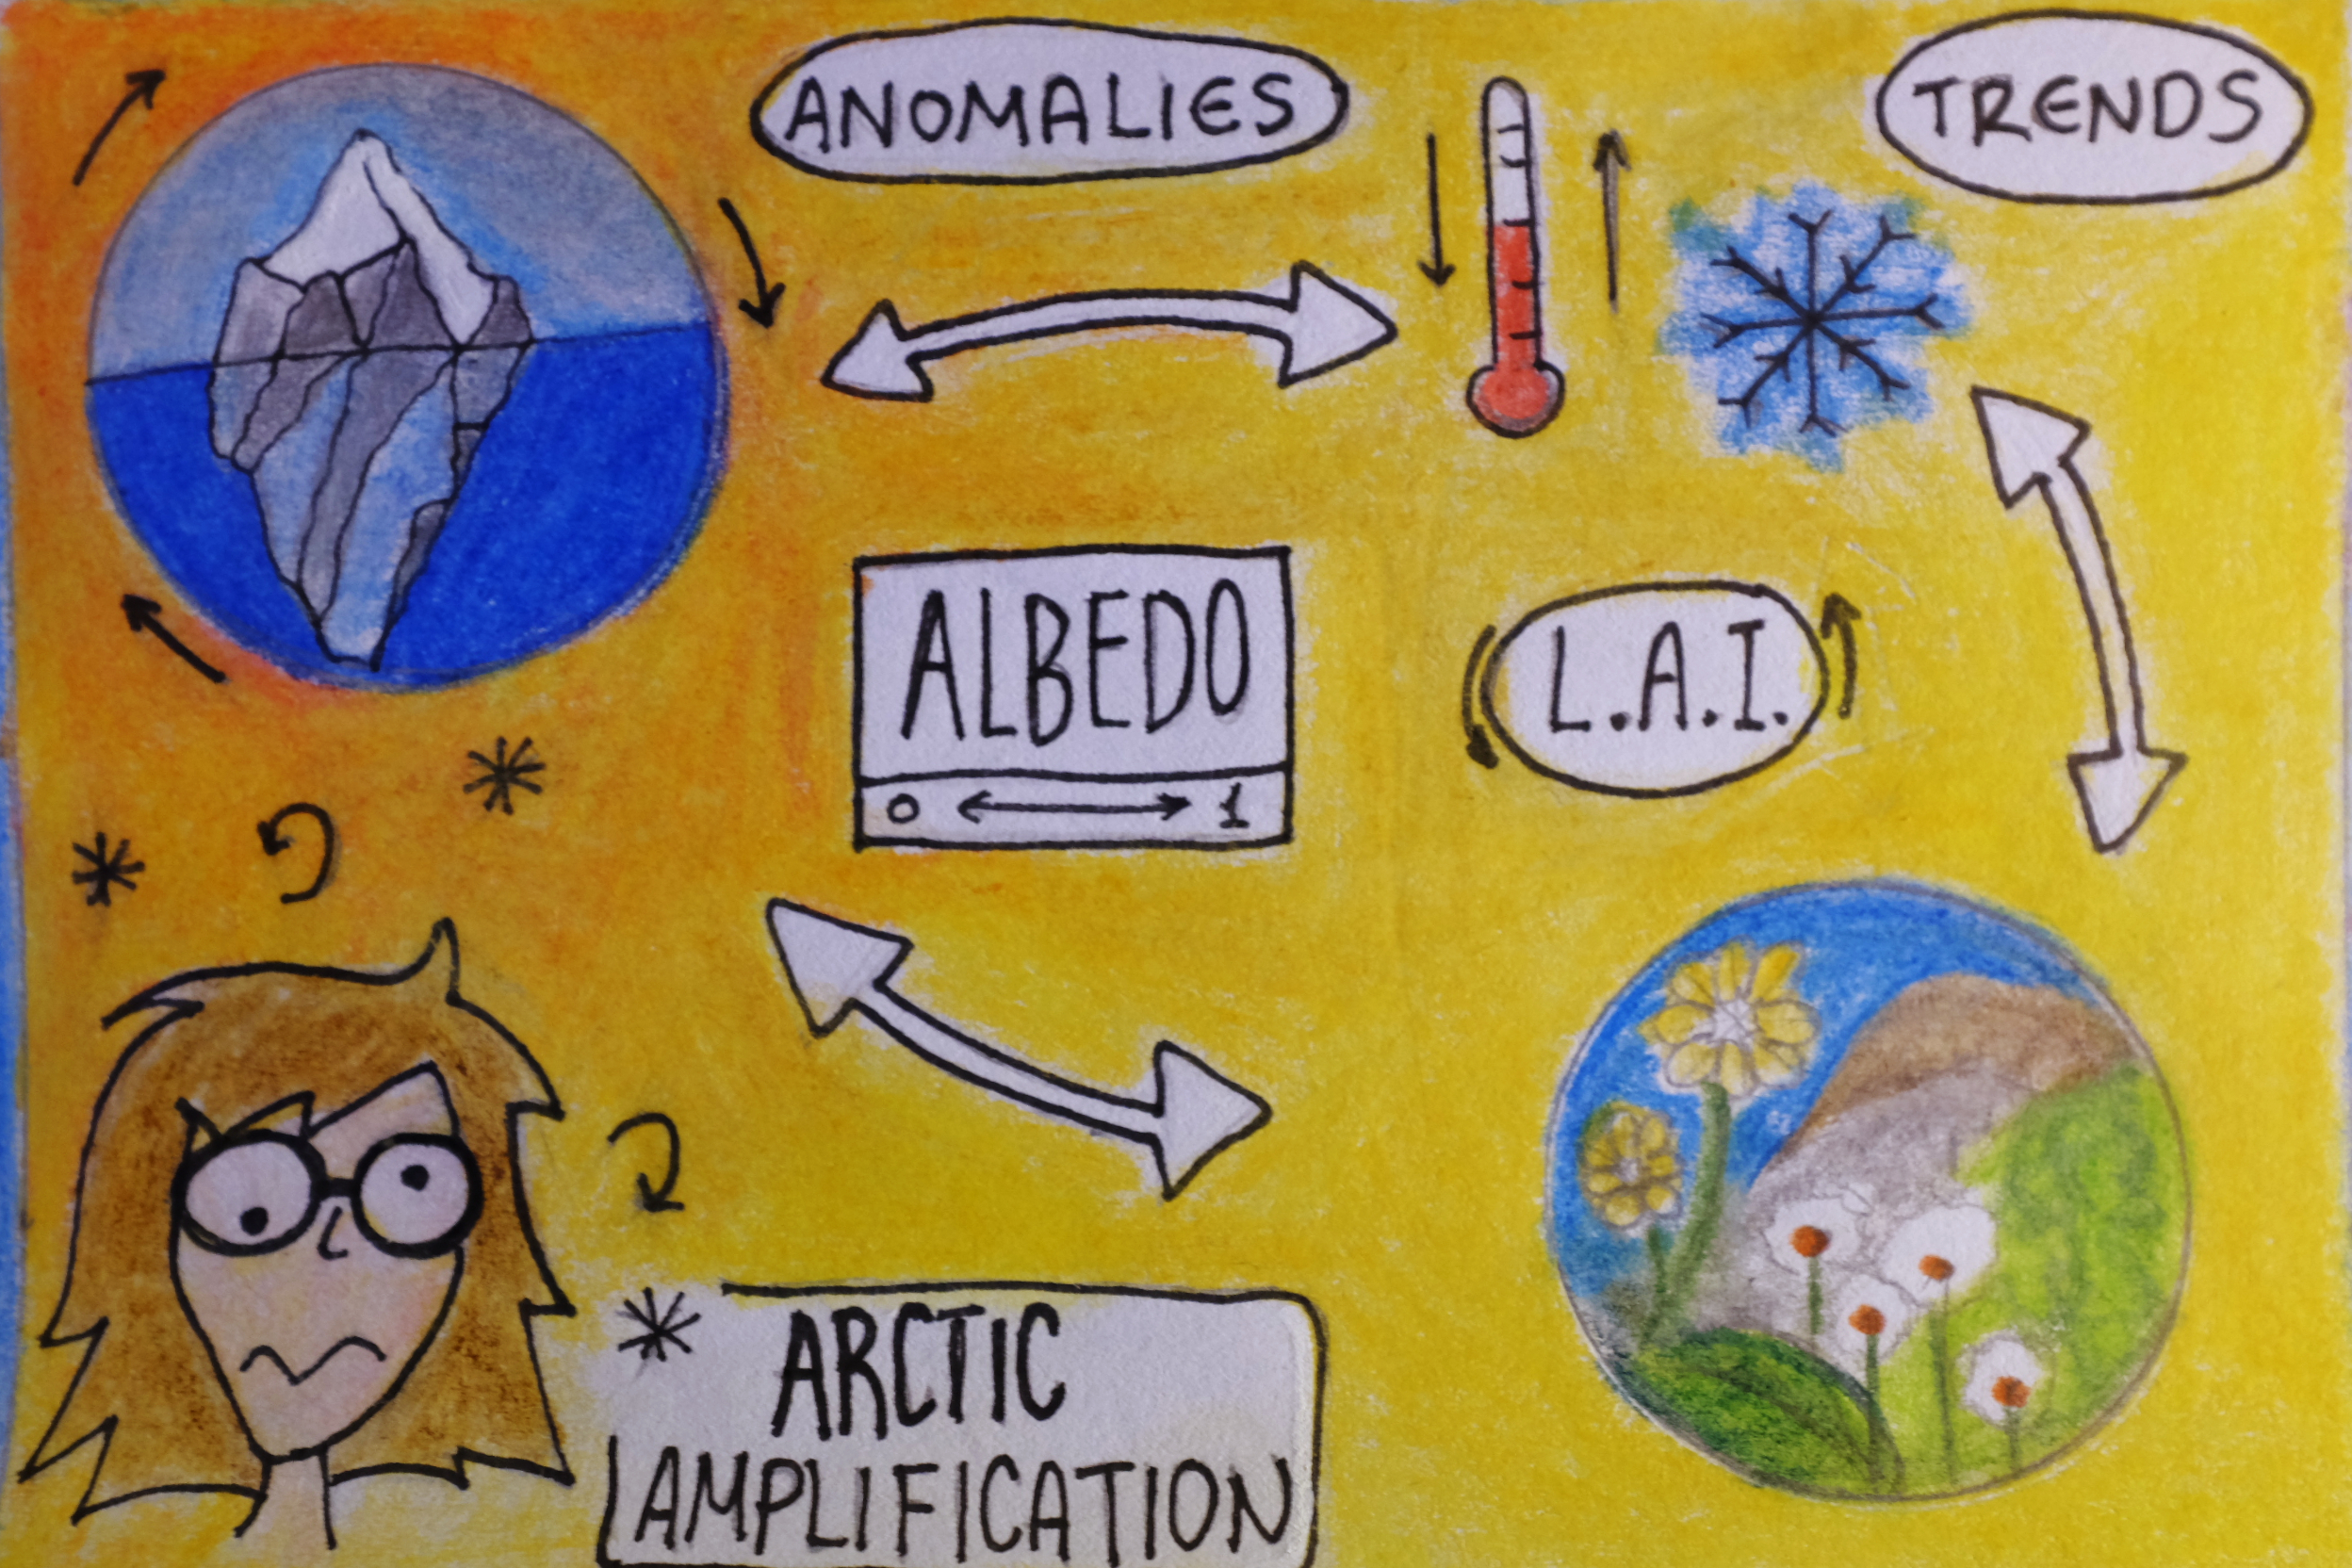 ANOMALIES
TRENDS
ALBEDO
0 1
L.A.I.
ARCTIC
AMPLIFICATION